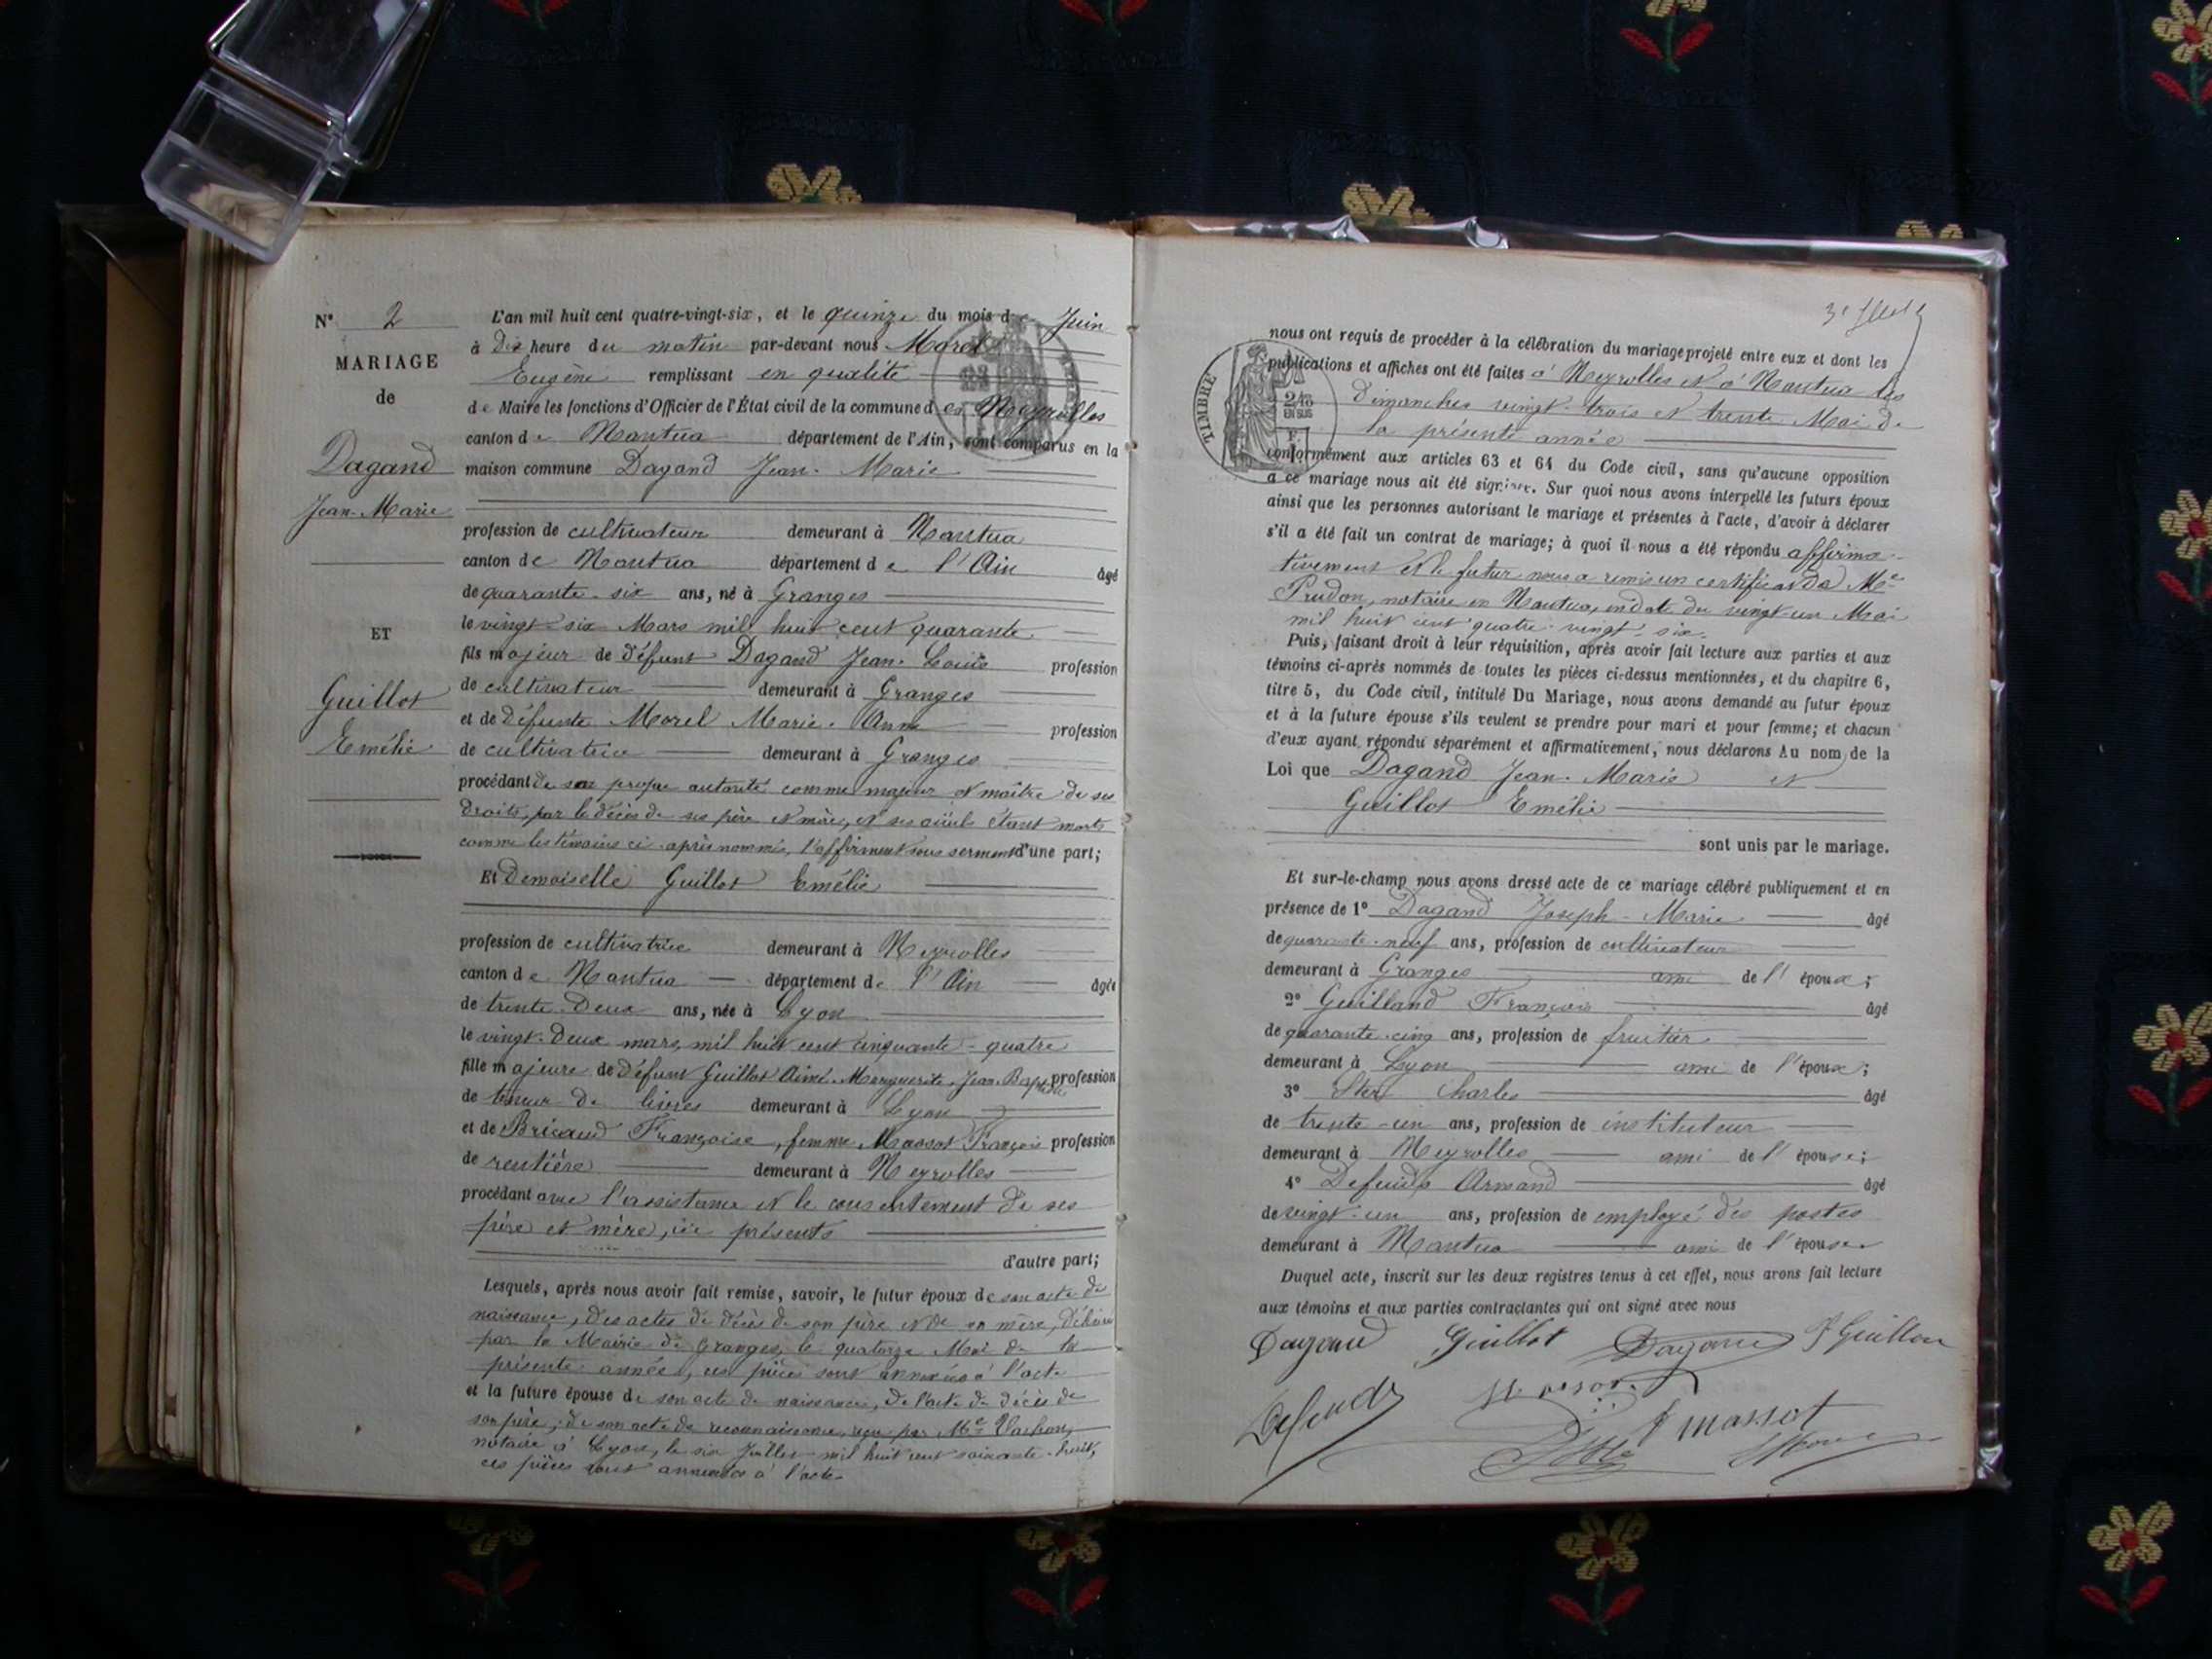 N° 2
MARIAGE
de
Dagand
Jean-Marie
ET
Guillot
Emélie
L'an mil huit cent quatre-vingt-six, et le quinze du mois de Juin
à Dix heure du matin par-devant nous Morel
Eugène remplissant en qualité
de Maire les fonctions d'Officier de l'État civil de la commune des Neyrolles
canton de Nantua département de l'Ain, sont comparus en la
maison commune Dagand Jean-Marie
profession de cultivateur demeurant à Nantua
canton de Nantua département de l'Ain âgé
de quarante-six ans, né à Granges
le vingt-six Mars mil huit cent quarante
fils majeur de défunt Dagand Jean-Louis profession
de cultivateur demeurant à Granges
et de Défunte Morel Marie-Anne profession
de cultivatrice demeurant à Granges
procédant de sa propre autorité comme majeur et maître de ses
droits, par le décès de ses père et mère, et ses aïeuls étant morts
comme les témoins ci-après nommés, l'affirment sous serment d'une part;
Et Demoiselle Guillot Emélie
profession de cultivatrice demeurant à Neyrolles
canton de Nantua département de l'Ain âgée
de trente-deux ans, née à Lyon
le vingt-deux mars, mil huit cent cinquante-quatre
fille majeure de défunt Guillot Aimé-Marguerite-Jean-Baptiste profession
de teneur de livres demeurant à Lyon
et de Bricaud Françoise, femme Massot François profession
de rentière demeurant à Neyrolles
procédant avec l'assistance et le consentement de ses
père et mère, ici présents
d'autre part;
Lesquels, après nous avoir fait remise, savoir, le futur époux de son acte de
naissance, des actes de décès de son père et de sa mère, délivrés
par la Mairie de Granges, le quatorze Mai de la
présente année, ces pièces sont annexées à l'acte
et la future épouse de son acte de naissance, de l'acte de décès de
son père, de son acte de reconnaissance, reçu par Me
notaire à Lyon, le six Juillet mil huit cent soixante-huit,
ces pièces sont annexées à l'acte
nous ont requis de procéder à la célébration du mariage projeté entre eux et dont les
publications et affiches ont été faites à Neyrolles et à Nantua les
dimanches vingt-trois et trente Mai de
la présente année
TIMBRE
2/10
EN SUS
conformément aux articles 63 et 64 du Code civil, sans qu'aucune opposition
à ce mariage nous ait été signifiée. Sur quoi nous avons interpellé les futurs époux
ainsi que les personnes autorisant le mariage et présentes à l'acte, d'avoir à déclarer
s'il a été fait un contrat de mariage; à quoi il nous a été répondu affirma-
tivement et le futur nous a remis un certificat de Me
Prudon, notaire en Nantua, en date du vingt-un Mai
mil huit cent quatre-vingt-six.
Puis, faisant droit à leur réquisition, après avoir fait lecture aux parties et aux
témoins ci-après nommés de toutes les pièces ci-dessus mentionnées, et du chapitre 6,
titre 5, du Code civil, intitulé Du Mariage, nous avons demandé au futur époux
et à la future épouse s'ils veulent se prendre pour mari et pour femme; et chacun
d'eux ayant répondu séparément et affirmativement, nous déclarons Au nom de la
Loi que Dagand Jean-Marie et
Guillot Emélie
sont unis par le mariage.
Et sur-le-champ nous avons dressé acte de ce mariage célébré publiquement et en
présence de 1° Dagand Joseph-Marie âgé
de quarante-neuf ans, profession de cultivateur
demeurant à Granges ami de l'époux;
2° Guilland François âgé
de quarante-cinq ans, profession de fruitier
demeurant à Lyon ami de l'époux;
3° Charles âgé
de trente-un ans, profession de instituteur
demeurant à Neyrolles ami de l'épouse;
4° Armand âgé
de vingt-un ans, profession de employé des postes
demeurant à Nantua ami de l'épouse
Duquel acte, inscrit sur les deux registres tenus à cet effet, nous avons fait lecture
aux témoins et aux parties contractantes qui ont signé avec nous
Dagand Guillot Dagand
f massot